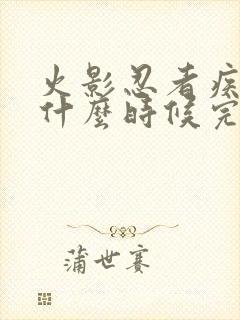 火影忍者疾
什麼時候完
蒲世賽